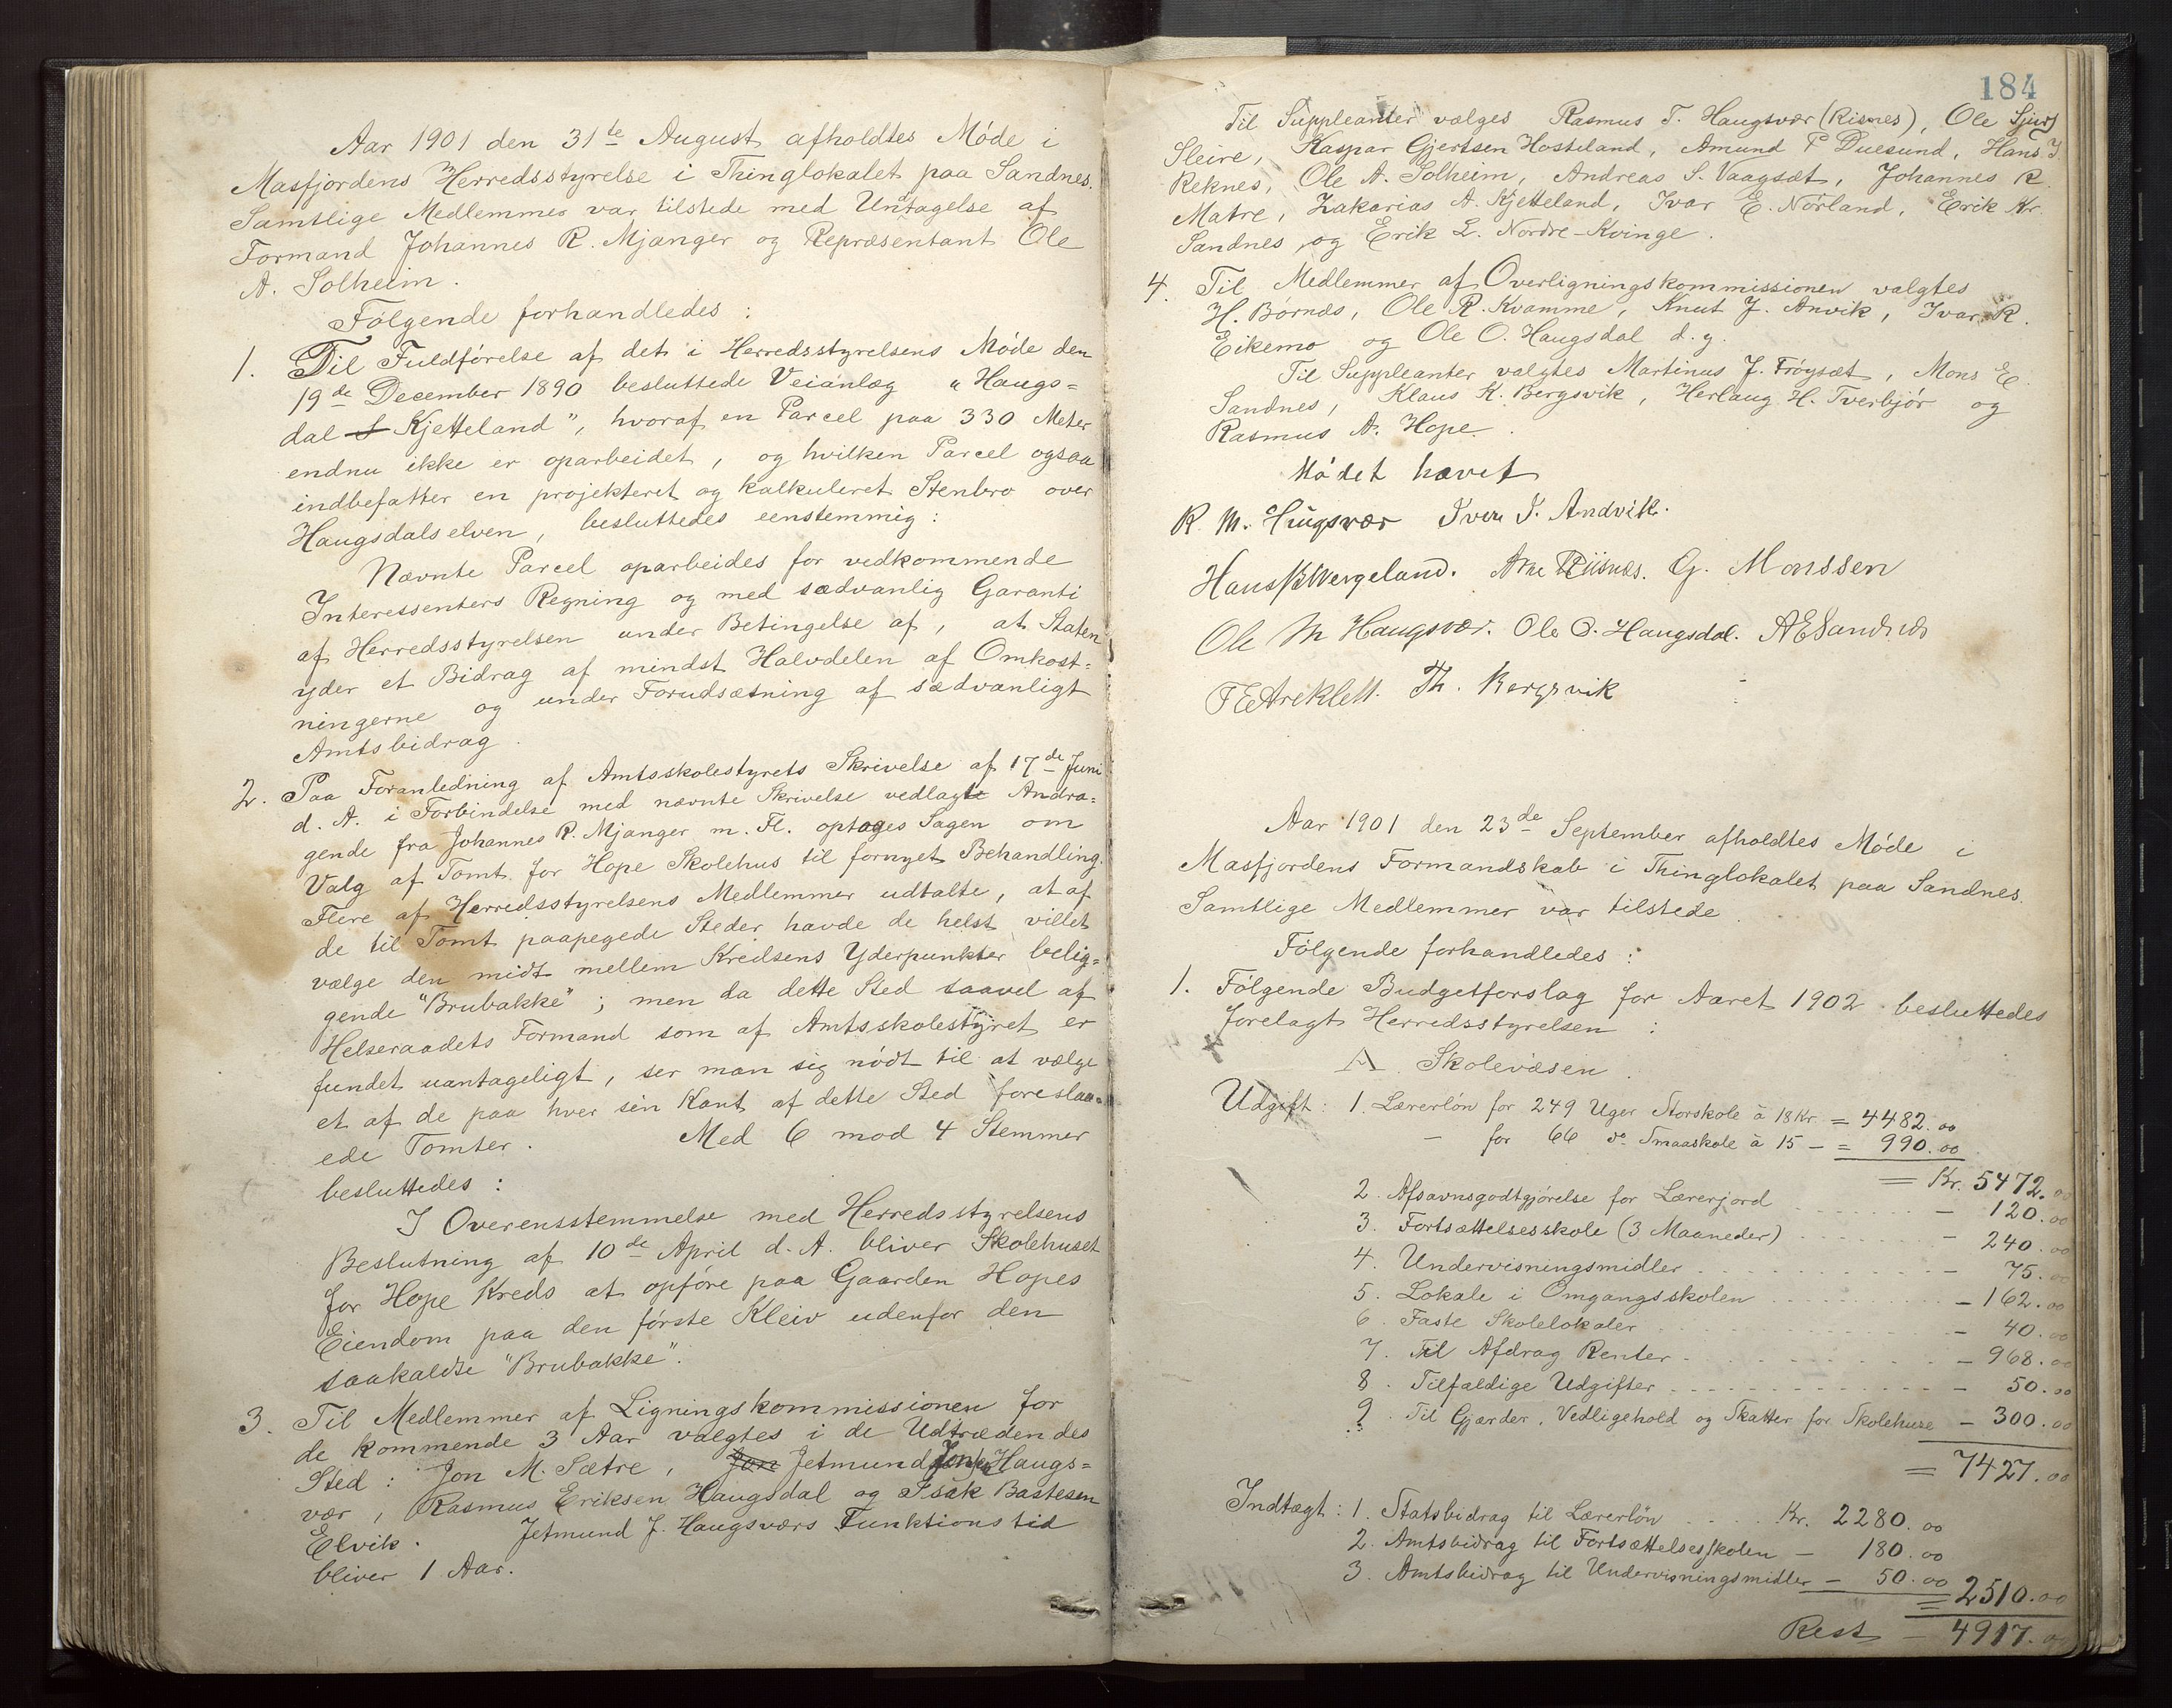 Aar 1901 den 31te August afholdtes Møde i
Masfjordens Herredsstyrelse i Thinglokalet paa Sandnes.
Samtlige Medlemmer var tilstede med Untagelse af
Formand Johannes R. Mjanger og Repræsentant Ole
A. Solheim.
Følgende forhandledes:
1. Til Fuldførelse af det i Herredsstyrelsens Møde den
19de December 1890 besluttede Veianlæg "Haugs=
dal Kjetteland", hvoraf en Parcel paa 330 Meter
endnu ikke er oparbeidet, og hvilken Parcel ogsaa
indbefatter en projekteret og kalkuleret Stenbro over
Haugsdalselven, besluttedes eenstemmig:
Nævnte Parcel oparbeides for vedkommende
Interessenters Regning og med sædvanlig Garanti
af Herredsstyrelsen under Betingelse af, at Staten
yder et Bidrag af mindst Halvdelen af Omkost=
ningerne og under Forudsætning af sædvanligt
Amtsbidrag.
2. Paa Foranledning af Amtsskolestyrets Skrivelse af 17de Juni
d. A. i Forbindelse med nævnte Skrivelse vedlagte Andra=
gende fra Johannes R. Mjanger m. Fl. optages Sagen om
Valg af Tomt for Hope Skolehus til fornyet Behandling.
Flere af Herredsstyrelsens Medlemmer udtalte, at af
de til Tomt paapegede Steder havde de helst villet
vælge den midt mellem Kredsens Yderpunkter belig=
gende "Brubakke"; men da dette Sted saavel af
Helseraadets Formand som af Amtsskolestyret er
fundet uantageligt, ser man sig nødt til at vælge
et af de paa hver sin Kant af dette Sted foreslaa=
ede Tomter. Med 6 mod 4 Stemmer
besluttedes:
I Overensstemmelse med Herredsstyrelsens
Beslutning af 10de April d. A. bliver Skolehuset
for Hope Kreds at opføre paa Gaarden Hopes
Eiendom paa den første Kleiv udenfor den
saakaldte "Brubakke".
3. Til Medlemmer af Ligningskommissionen for
de kommende 3 Aar valgtes i de Udtrædendes
Sted: Jon M. Sætre, Jon Jetmund Jonsen Haugs=
vær, Rasmus Eriksen Haugsdal og Isak Bastesen
Elvik. Jetmund J. Haugsværs Funktionstid
bliver 1 Aar.
184
Til Suppleanter vælges Rasmus T. Haugsvær (Risnes), Ole Sjurs
Sleire, Kaspar Gjertsen Hosteland, Amund P Duesund, Hans J.
Reknes, Ole A. Solheim, Andreas S. Vaagsæt, Johannes R.
Matre, Zakarias A. Kjetteland, Ivar E. Nørland, Erik Kr.
Sandnes og Erik L. Nordre-Kvinge.
4. Til Medlemmer af Overligningskommissionen valgtes
H. Børnæs, Ole R. Kvamme, Knut J. Anvik, Ivar R.
Eikemo og Ole O. Haugsdal d. y.
Til Suppleanter valgtes Martinus J. Frøysæt, Mons E.
Sandnes, Klaus K. Bergsvik, Herlaug H. Tverbjør og
Rasmus A. Hope.
Mødet hævet
R. M. Hugsvær Iver J. Andvik.
Hans Wergeland. Arne Riisnæs. G. Monssen
Ole M Haugsvær. Ole O. Haugsdal. A E Sandnæs
T E Areklett. Th. Bergsvik
Aar 1901 den 23de September afholdtes Møde i
Masfjordens Formandskab i Thinglokalet paa Sandnes.
Samtlige Medlemmer var tilstede.
Følgende forhandledes:
1. Følgende Budgetforslag for Aaret 1902 besluttedes
forelagt Herredsstyrelsen:
A. Skolevæsen.
Udgift: 1. Lærerløn for 249 Uger Storskole à 18 Kr. = 4482.00
– for 66 do Smaaskole à 15 – = 990.00
= Kr. 5472.00
2. Afsavnsgodtgjørelse for Lærerjord – 120.00
3. Fortsættelsesskole (3 Maaneder) – 240.00
4. Undervisningsmidler – 75.00
5. Lokale i Omgangsskolen – 162.00
6. Faste Skolelokaler – 40.00
7. Til Afdrag Renter – 968.00
8. Tilfældige Udgifter – 50.00
9. Til Gjærder, Vedligehold og Skatter for Skolehuse – 300.00
= 7427.00
Indtægt: 1. Statsbidrag til Lærerløn Kr. 2280.00
2. Amtsbidrag til Fortsættelsesskolen – 180.00
3. Amtsbidrag til Undervisningsmidler – 50.00
= 2510.00
Rest – 4917.00